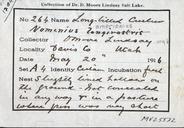 Collection of Dr. D. Moore Lindsay Salt Lake.
No 266 Name Long-billed Curlew
Numenius longirostris
americanus
Collector D Moore Lindsay
Locality Davis Co Utah
Date May 20 1916
Set A 4 Identity Certain Incubation fresh
Nest Slightly lined hollow in
the ground. Not concealed
in any way & in a pasture
where grass was very short